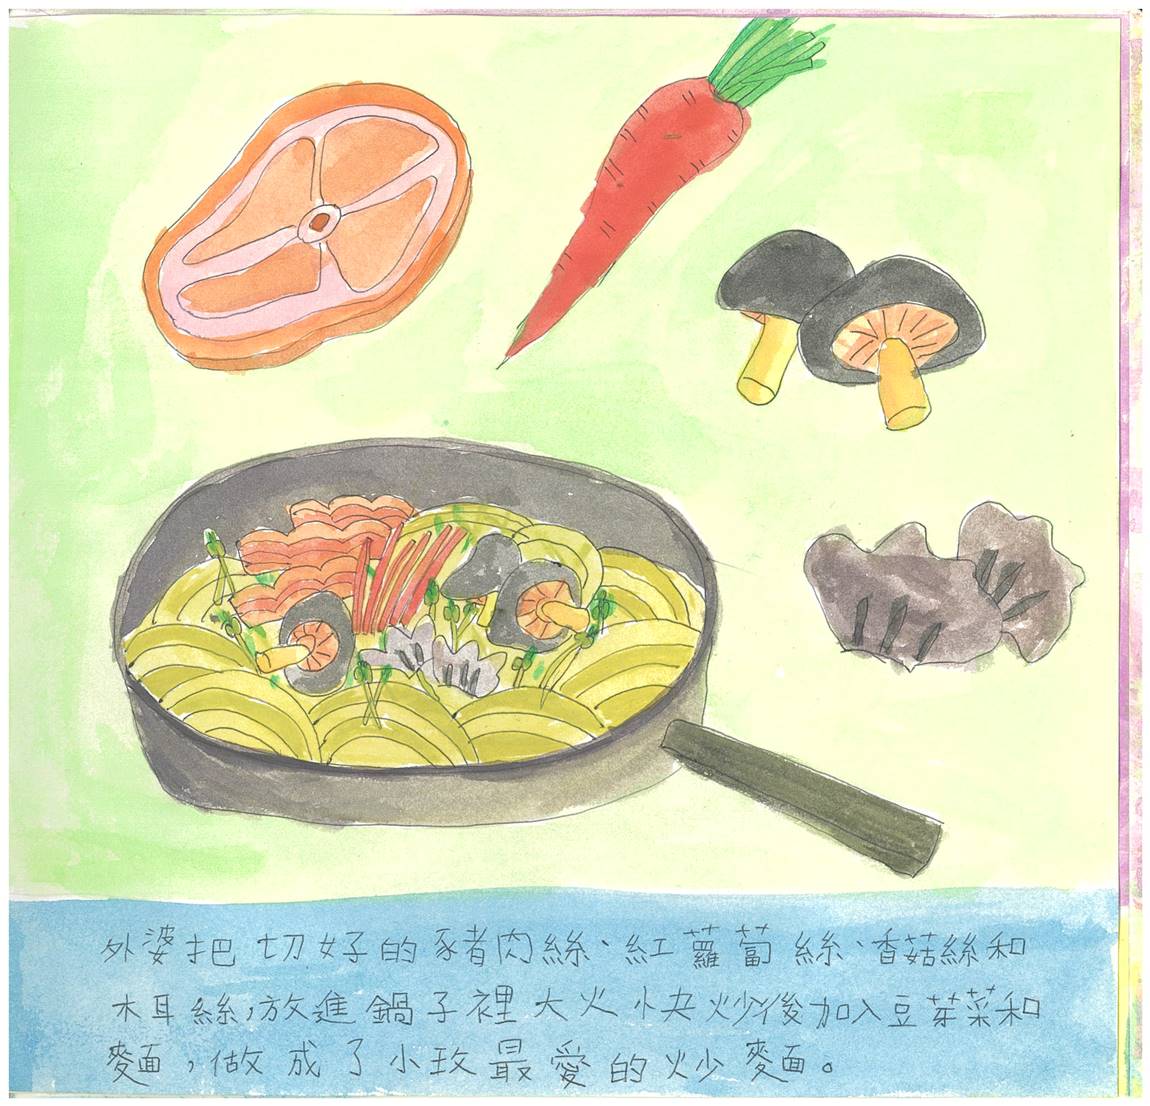 外婆把切好的豬肉絲、紅蘿蔔絲、香菇絲和
木耳絲，放進鍋子裡大火快炒後加入豆芽菜和
麵，做成了小玫最愛的炒麵。